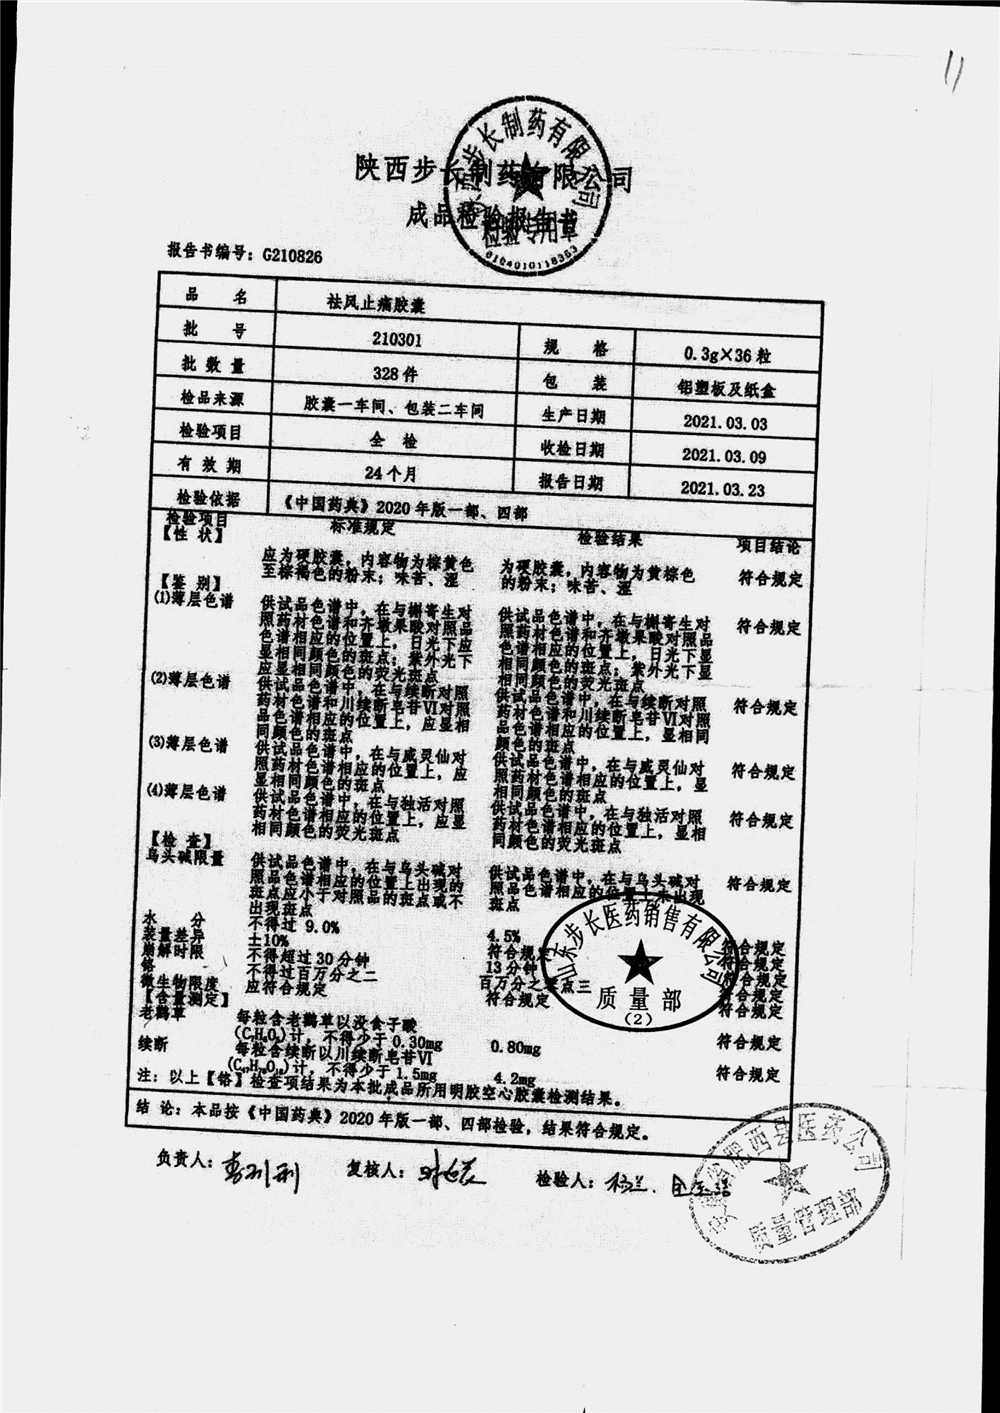 11
陕西步长制药有限公司
成品检验报告书
陕西步长制药有限公司
检验专用章
6104010118353
报告书编号：G210826
品 名 祛风止痛胶囊
批 号 210301 规 格 0.3g×36粒
批 数 量 328件 包 装 铝塑板及纸盒
检品来源 胶囊一车间、包装二车间 生产日期 2021.03.03
检验项目 全 检 收检日期 2021.03.09
有 效 期 24个月 报告日期 2021.03.23
检验依据 《中国药典》2020年版一部、四部
检验项目 标准规定 检验结果 项目结论
【性 状】 应为硬胶囊，内容物为棕黄色 为硬胶囊，内容物为黄棕色 符合规定
至棕褐色的粉末；味苦、涩 的粉末；味苦、涩
【鉴 别】
(1)薄层色谱 供试品色谱中，在与槲寄生对 供试品色谱中，在与槲寄生对 符合规定
照药材色谱和齐墩果酸对照品 照药材色谱和齐墩果酸对照品
色谱相应的位置上，日光下应 色谱相应的位置上，日光下显
显相同颜色的斑点；紫外光下 相同颜色的斑点；紫外光下显
应显相同颜色的荧光斑点 相同颜色的荧光斑点
(2)薄层色谱 供试品色谱中，在与续断对照 供试品色谱中，在与续断对照 符合规定
药材色谱和川续断皂苷Ⅵ对照 药材色谱和川续断皂苷Ⅵ对照
品色谱相应的位置上，应显相 品色谱相应的位置上，显相同
同颜色的斑点 颜色的斑点
(3)薄层色谱 供试品色谱中，在与威灵仙对 供试品色谱中，在与威灵仙对 符合规定
照药材色谱相应的位置上，应 照药材色谱相应的位置上，显
显相同颜色的斑点 相同颜色的斑点
(4)薄层色谱 供试品色谱中，在与独活对照 供试品色谱中，在与独活对照 符合规定
药材色谱相应的位置上，应显 药材色谱相应的位置上，显相
相同颜色的荧光斑点 同颜色的荧光斑点
【检 查】
乌头碱限量 供试品色谱中，在与乌头碱对 供试品色谱中，在与乌头碱对 符合规定
照品色谱相应的位置上出现的 照品色谱相应的位置上未出现
斑点应小于对照品的斑点或不 斑点
出现斑点
水 分 不得过9.0% 4.5% 符合规定
装量差异 ±10% 符合规定 符合规定
崩解时限 不得超过30分钟 13分钟 符合规定
铬 不得过百万分之二 百万分之零点三 符合规定
微生物限度 应符合规定 符合规定 符合规定
【含量测定】
老鹳草 每粒含老鹳草以没食子酸
(C₇H₆O₅)计，不得少于0.30mg 0.80mg 符合规定
续断 每粒含续断以川续断皂苷Ⅵ
(C₄₇H₇₆O₁₈)计，不得少于1.5mg 4.2mg 符合规定
注：以上【铬】检查项结果为本批成品所用明胶空心胶囊检测结果。
结 论：本品按《中国药典》2020年版一部、四部检验，结果符合规定。
山东步长医药销售有限公司
质量部
(2)
负责人： 复核人： 检验人：
安徽省肥西县医药公司
质量管理部